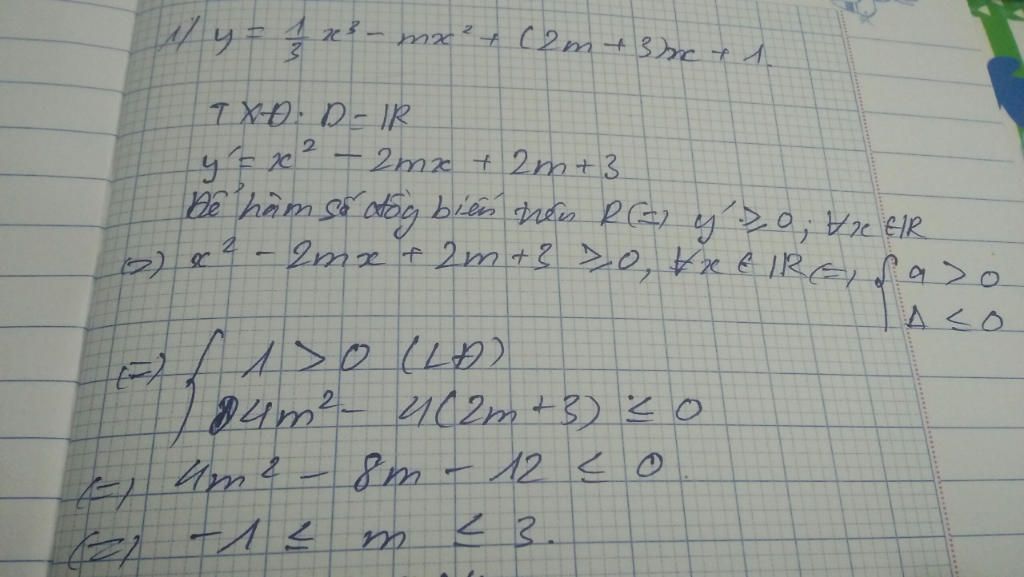 1) y = 1/3 x³ - mx² + (2m + 3)x + 1.
TXĐ: D = IR
y' = x² - 2mx + 2m + 3
Để hàm số đồg biến trên R (=) y' ≥ 0; ∀x ∈ IR
(=) x² - 2mx + 2m + 3 ≥ 0, ∀x ∈ IR (=) { a > 0
Δ ≤ 0
(=) { 1 > 0 (LĐ)
4m² - 4(2m + 3) ≤ 0
(=) 4m² - 8m - 12 ≤ 0.
(=) -1 ≤ m ≤ 3.